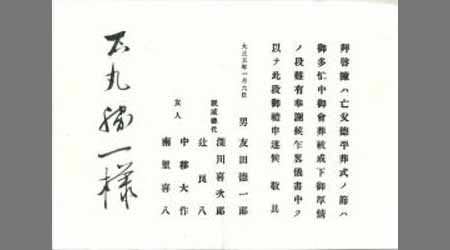 拜啓陳ハ亡父德平葬式ノ節ハ
御多忙中御會葬被成下御厚情
ノ段難有奉謝候乍畧儀書中ヲ
以テ此段御禮申述候 敬具
大正五年一月六日
男 友田德一郎
親戚總代
深川喜次郎
辻良八
友人
中村大作
南里喜八
石丸勝一様